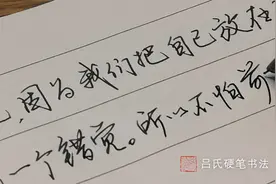 因为我们把自己放在
一个错觉。所以不怕前
吕氏硬笔书法